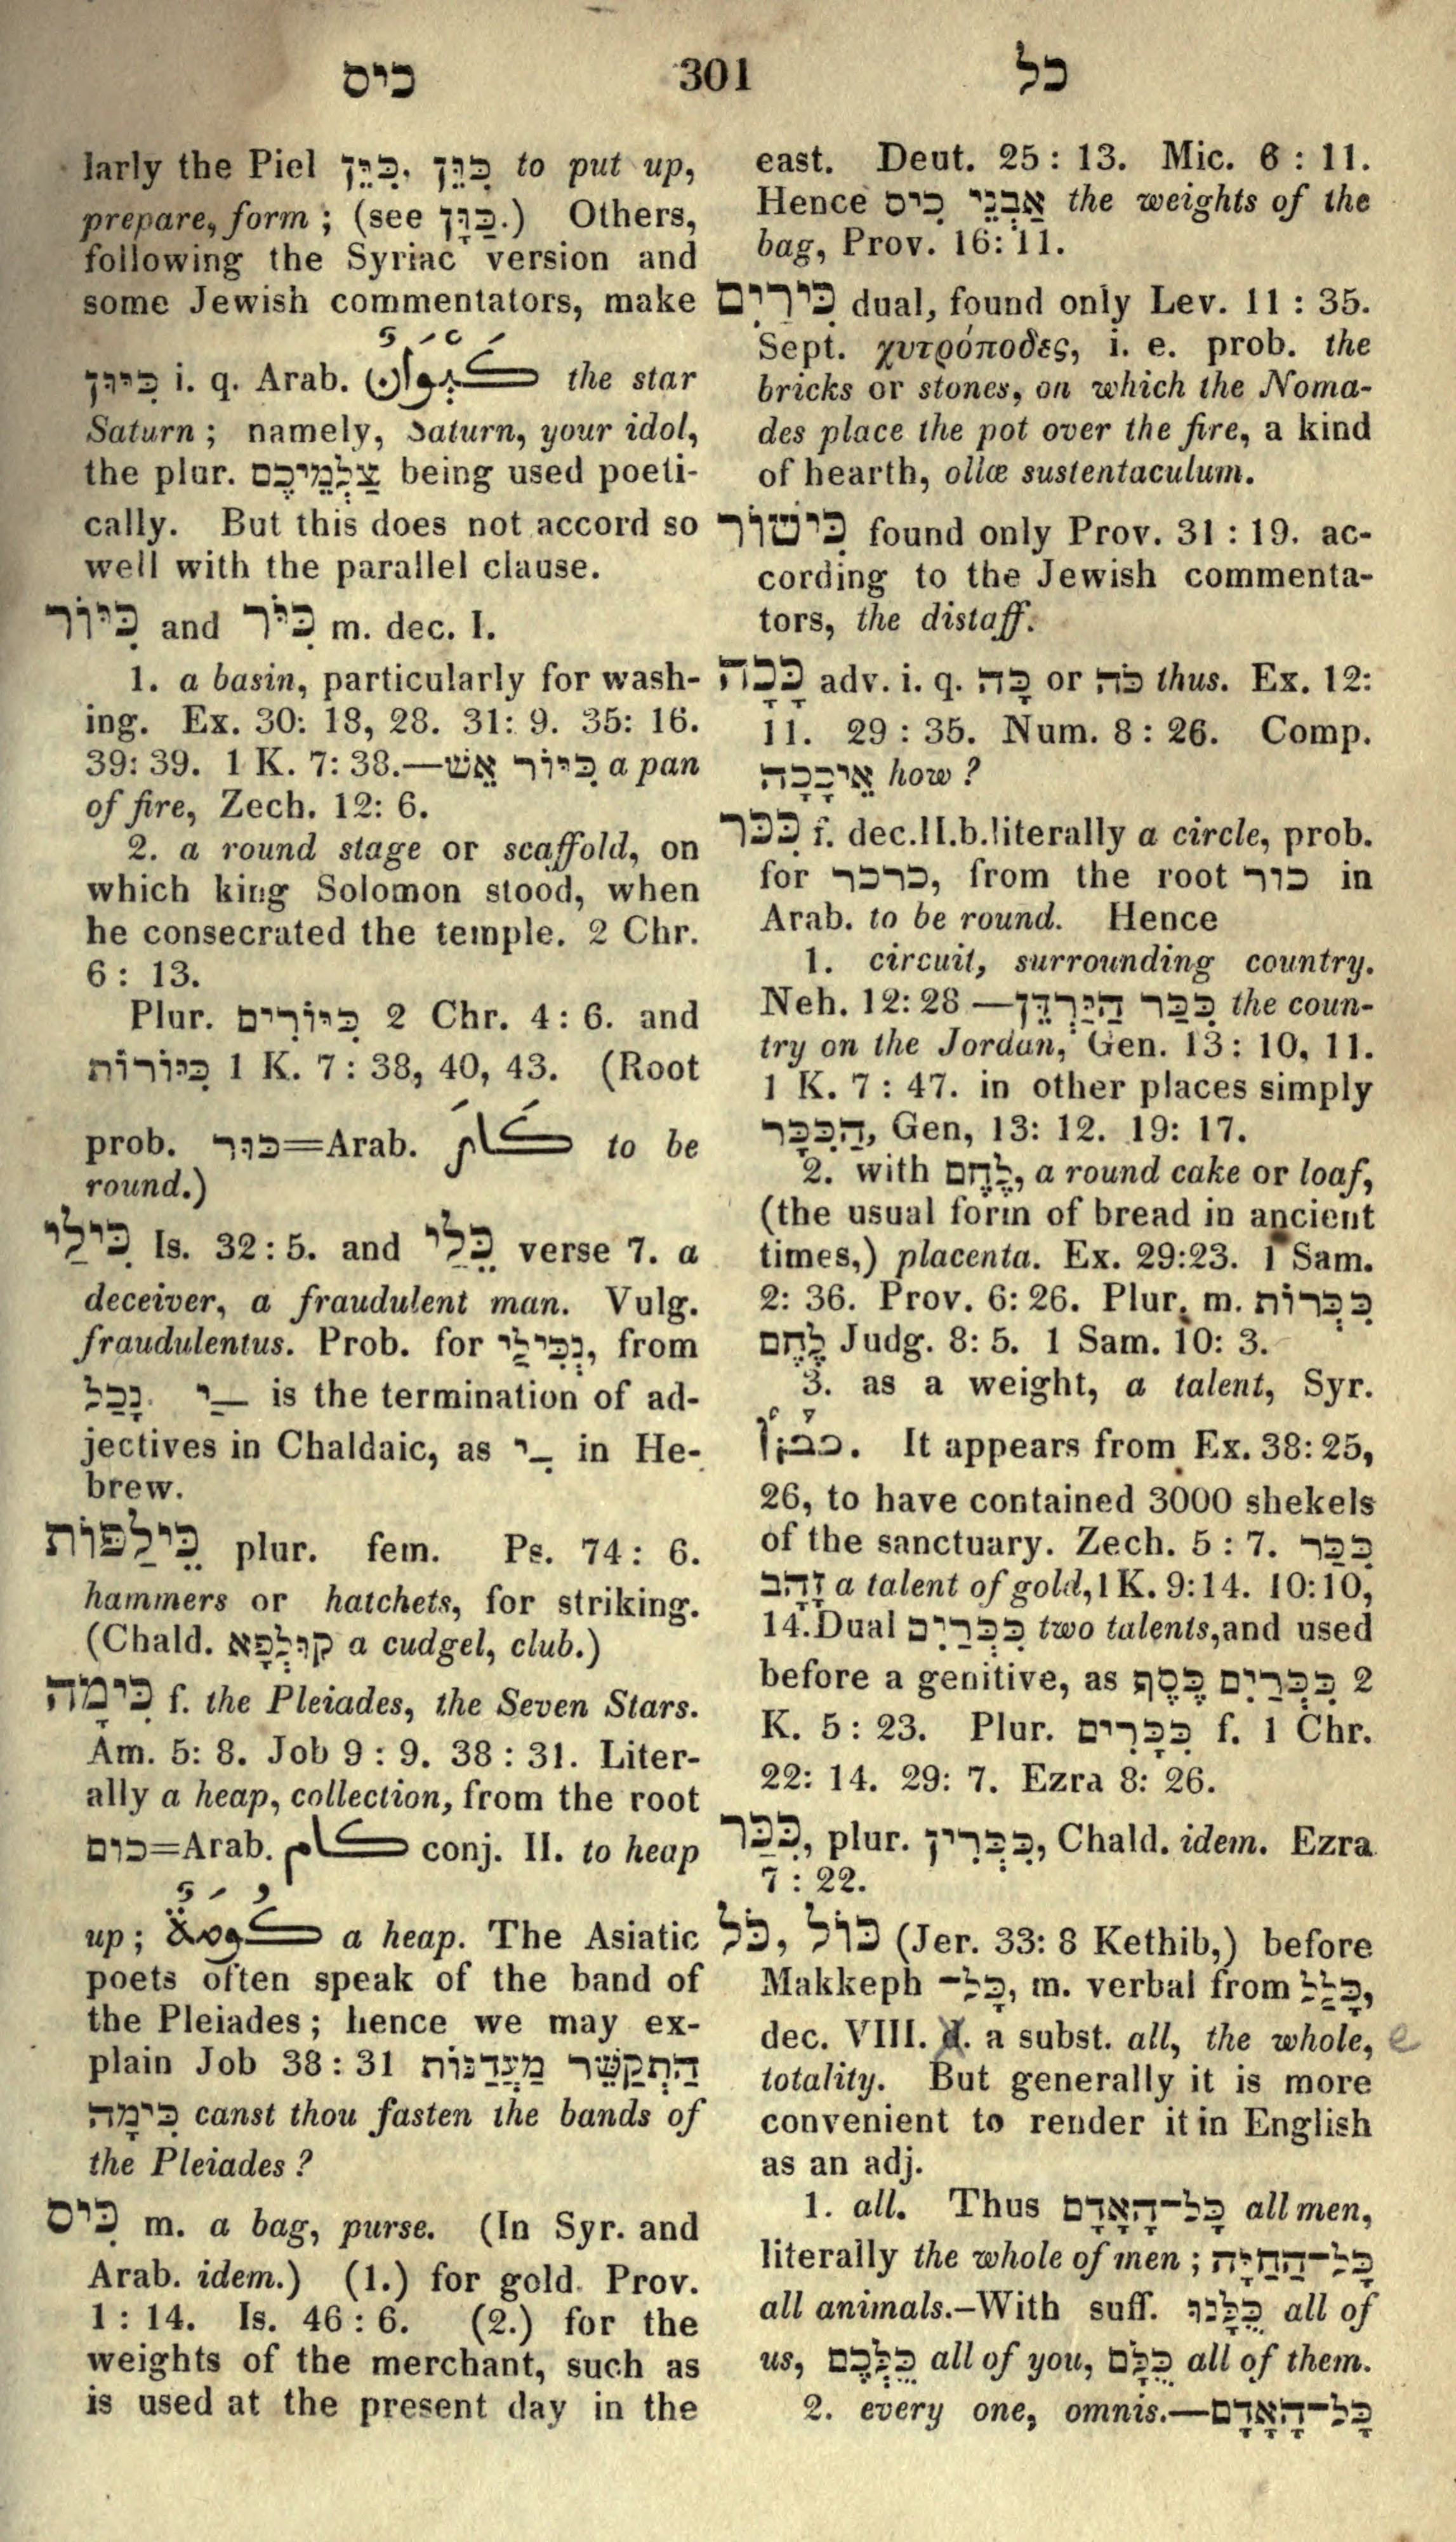 כיס 301 כל
larly the Piel כִּיֵּן, כִּיֵּן to put up,
prepare, form ; (see כַּוָּן.) Others,
following the Syriac version and
some Jewish commentators, make
כִּיּוּן i. q. Arab. كَيْوَانٌ the star
Saturn ; namely, Saturn, your idol,
the plur. צַלְמֵיכֶם being used poeti-
cally. But this does not accord so
well with the parallel clause.
כִּיּוֹר and כִּיֹּר m. dec. I.
1. a basin, particularly for wash-
ing. Ex. 30: 18, 28. 31: 9. 35: 16.
39: 39. 1 K. 7: 38.—כִּיּוֹר אֵשׁ a pan
of fire, Zech. 12: 6.
2. a round stage or scaffold, on
which king Solomon stood, when
he consecrated the temple. 2 Chr.
6 : 13.
Plur. כִּיּוֹרִים 2 Chr. 4 : 6. and
כִּיּוֹרוֹת 1 K. 7 : 38, 40, 43. (Root
prob. כּוּר=Arab. كَارَ to be
round.)
כִּילַי Is. 32 : 5. and כֵּלַי verse 7. a
deceiver, a fraudulent man. Vulg.
fraudulentus. Prob. for נְכִילַי, from
נָכַל. ־ַי is the termination of ad-
jectives in Chaldaic, as ־ִי in He-
brew.
כֵּילַפּוֹת plur. fem. Ps. 74 : 6.
hammers or hatchets, for striking.
(Chald. קוּלְפָא a cudgel, club.)
כִּימָה f. the Pleiades, the Seven Stars.
Am. 5: 8. Job 9 : 9. 38 : 31. Liter-
ally a heap, collection, from the root
כום=Arab. كام conj. II. to heap
up ; كُومَةٌ a heap. The Asiatic
poets often speak of the band of
the Pleiades ; hence we may ex-
plain Job 38 : 31 הַתְקַשֵּׁר מַעֲדַנּוֹת
כִּימָה canst thou fasten the bands of
the Pleiades ?
כִּיס m. a bag, purse. (In Syr. and
Arab. idem.) (1.) for gold. Prov.
1 : 14. Is. 46 : 6. (2.) for the
weights of the merchant, such as
is used at the present day in the
east. Deut. 25 : 13. Mic. 6 : 11.
Hence אַבְנֵי כִיס the weights of the
bag, Prov. 16: 11.
כִּירַיִם dual, found only Lev. 11 : 35.
Sept. χυτρόποδες, i. e. prob. the
bricks or stones, on which the Noma-
des place the pot over the fire, a kind
of hearth, ollæ sustentaculum.
כִּישׁוֹר found only Prov. 31 : 19. ac-
cording to the Jewish commenta-
tors, the distaff.
כָּכָה adv. i. q. כָּה or כֹּה thus. Ex. 12:
11. 29 : 35. Num. 8 : 26. Comp.
אֵיכָכָה how ?
כִּכָּר f. dec.II.b.literally a circle, prob.
for כרכר, from the root כור in
Arab. to be round. Hence
1. circuit, surrounding country.
Neh. 12: 28 —כִּכַּר הַיַּרְדֵּן the coun-
try on the Jordan, Gen. 13 : 10, 11.
1 K. 7 : 47. in other places simply
הַכִּכָּר, Gen, 13: 12. 19: 17.
2. with לֶחֶם, a round cake or loaf,
(the usual form of bread in ancient
times,) placenta. Ex. 29:23. 1 Sam.
2: 36. Prov. 6: 26. Plur. m. כִּכְּרוֹת
לֶחֶם Judg. 8: 5. 1 Sam. 10: 3.
3. as a weight, a talent, Syr.
It appears from Ex. 38: 25,
26, to have contained 3000 shekels
of the sanctuary. Zech. 5 : 7. כִּכַּר
זָהָב a talent of gold,1 K. 9:14. 10:10,
14.Dual כִּכְּרַיִם two talents,and used
before a genitive, as כִּכְּרַיִם כֶּסֶף 2
K. 5 : 23. Plur. כִּכָּרִים f. 1 Chr.
22: 14. 29: 7. Ezra 8: 26.
כִּכַּר, plur. כִּכְּרִין, Chald. idem. Ezra
7 : 22.
כֹּל, כּוֹל (Jer. 33: 8 Kethib,) before
Makkeph כָּל־, m. verbal from כָּלַל,
dec. VIII. a subst. all, the whole, e
totality. But generally it is more
convenient to render it in English
as an adj.
1. all. Thus כָּל־הָאָדָם all men,
literally the whole of men ; כָּל־הַחַיָּה
all animals.–With suff. כֻּלָּנוּ all of
us, כֻּלְּכֶם all of you, כֻּלָּם all of them.
2. every one, omnis.—כָּל־הָאָדָם